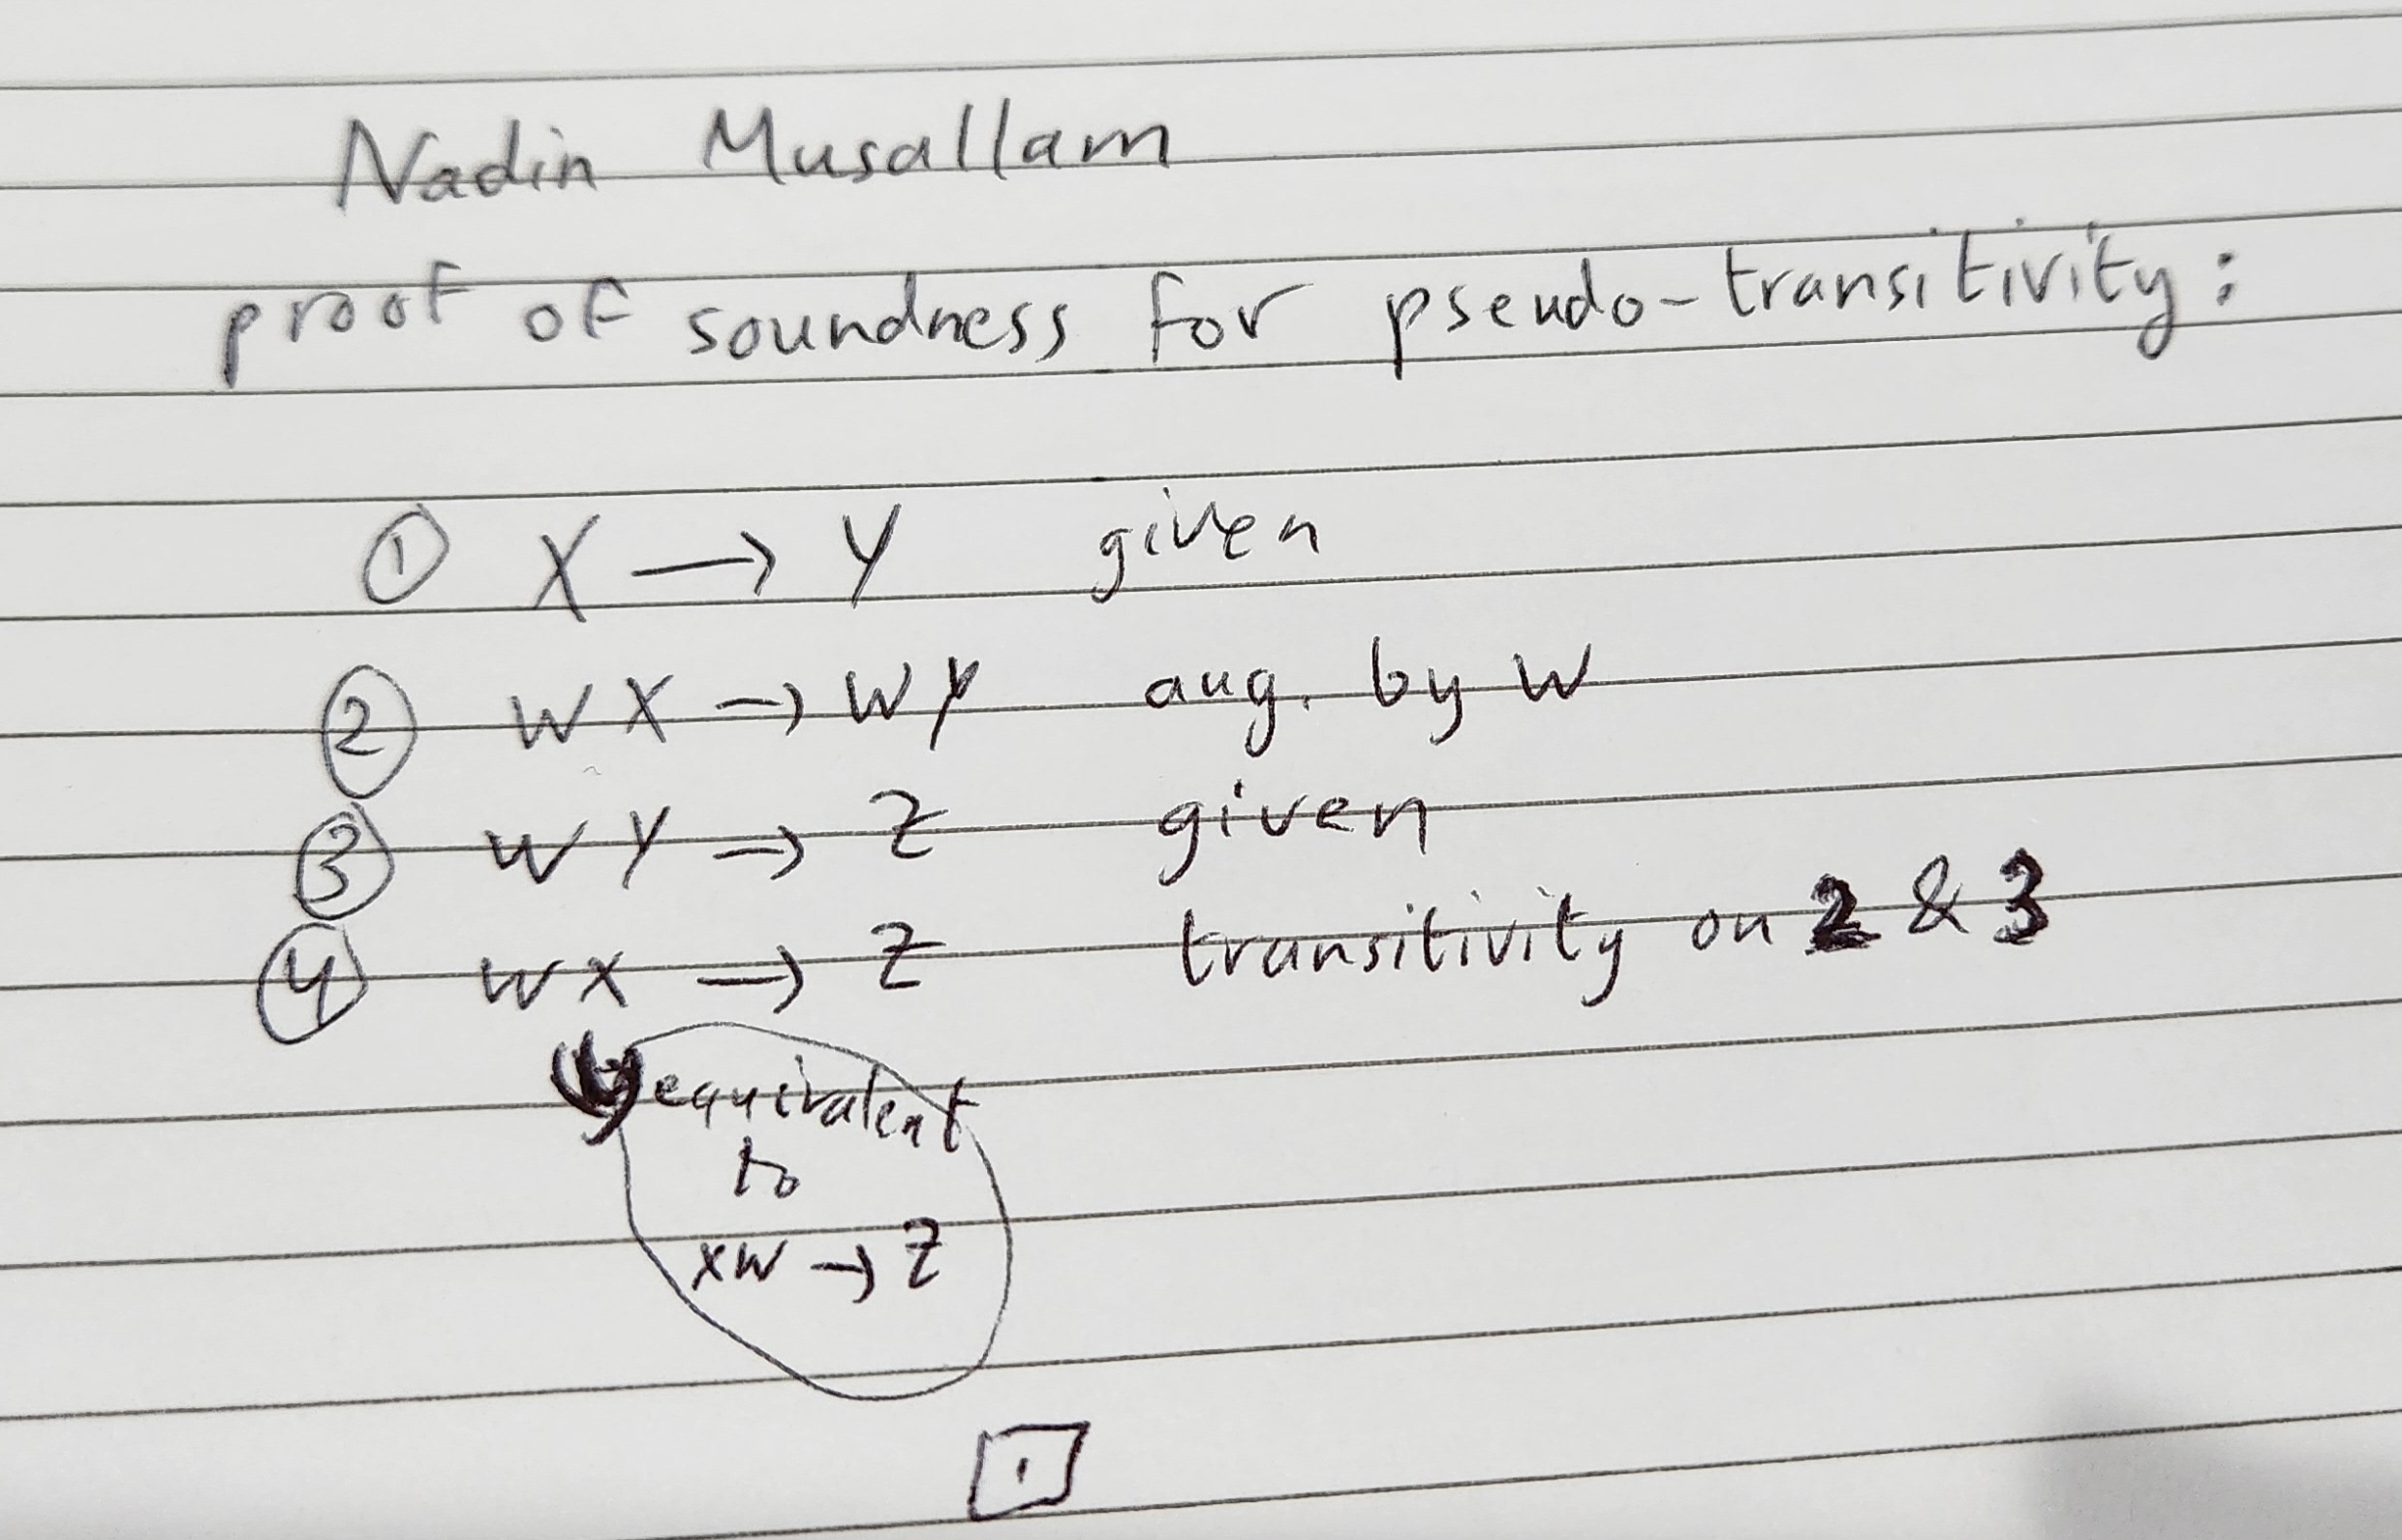 Nadin Musallam
proof of soundness for pseudo-transitivity:
① X → Y given
② WX → WY aug. by W
③ WY → Z given
④ WX → Z transitivity on 2 & 3
equivalent
to
XW → Z